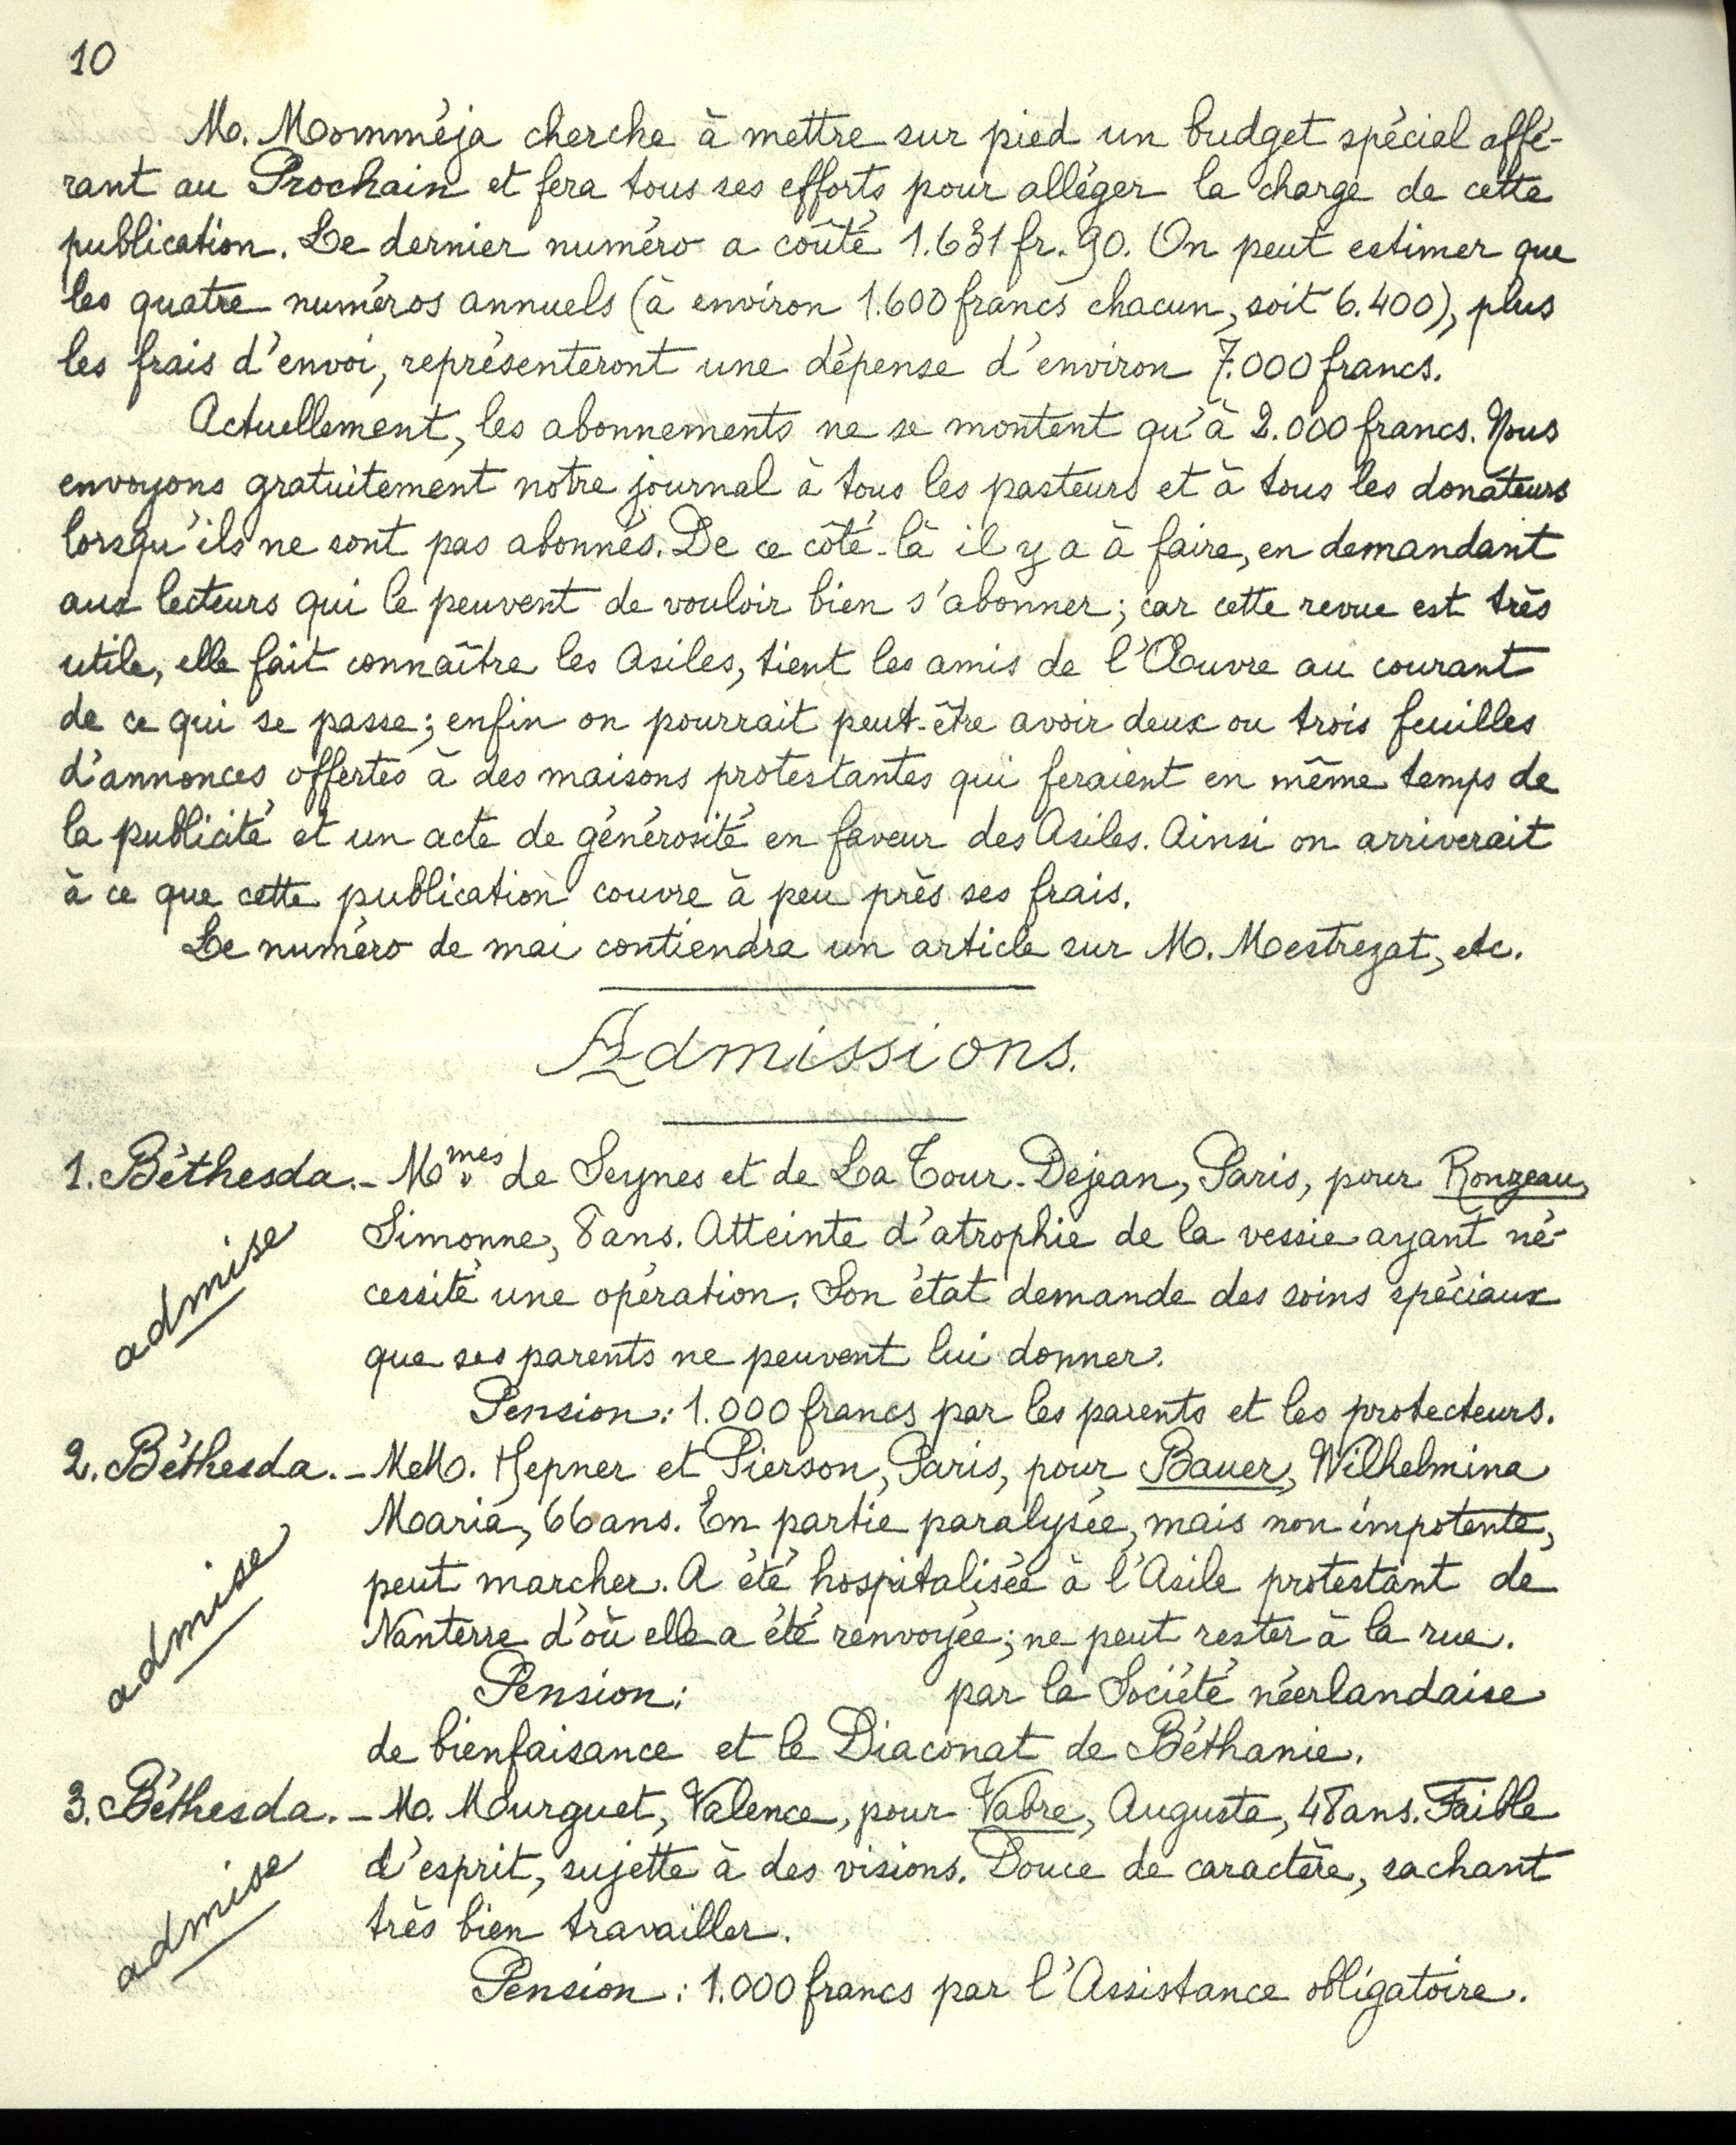 10
M. Momméja cherche à mettre sur pied un budget spécial affé-
rant au Prochain et fera tous ses efforts pour alléger la charge de cette
publication. Le dernier numéro a coûté 1.631 fr. 90. On peut estimer que
les quatre numéros annuels (à environ 1.600 francs chacun, soit 6.400), plus
les frais d'envoi, représenteront une dépense d'environ 7.000 francs.
Actuellement, les abonnements ne se montent qu'à 2.000 francs. Nous
envoyons gratuitement notre journal à tous les pasteurs et à tous les donateurs
lorsqu'ils ne sont pas abonnés. De ce côté-là il y a à faire, en demandant
aux lecteurs qui le peuvent de vouloir bien s'abonner; car cette revue est très
utile, elle fait connaître les Asiles, tient les amis de l'Œuvre au courant
de ce qui se passe; enfin on pourrait peut-être avoir deux ou trois feuilles
d'annonces offertes à des maisons protestantes qui feraient en même temps de
la publicité et un acte de générosité en faveur des Asiles. Ainsi on arriverait
à ce que cette publication couvre à peu près ses frais.
Le numéro de mai contiendra un article sur M. Mestrezat, etc.
Admissions.
1. Béthesda. - Mmes de Seynes et de La Tour-Dejean, Paris, pour Ronzeau,
Simonne, 8 ans. Atteinte d'atrophie de la vessie ayant né-
admise
cessité une opération. Son état demande des soins spéciaux
que ses parents ne peuvent lui donner.
Pension: 1.000 francs par les parents et les protecteurs.
2. Béthesda. - MM. Hepner et Pierson, Paris, pour Bauer, Wilhelmina
Maria, 66 ans. En partie paralysée, mais non impotente,
admise
peut marcher. A été hospitalisée à l'Asile protestant de
Nanterre d'où elle a été renvoyée; ne peut rester à la rue.
Pension: par la Société néerlandaise
de bienfaisance et le Diaconat de Béthanie.
3. Béthesda. - M. Mourguet, Valence, pour Vabre, Augusta, 48 ans. Faible
d'esprit, sujette à des visions. Douce de caractère, sachant
admise
très bien travailler.
Pension: 1.000 francs par l'Assistance obligatoire.